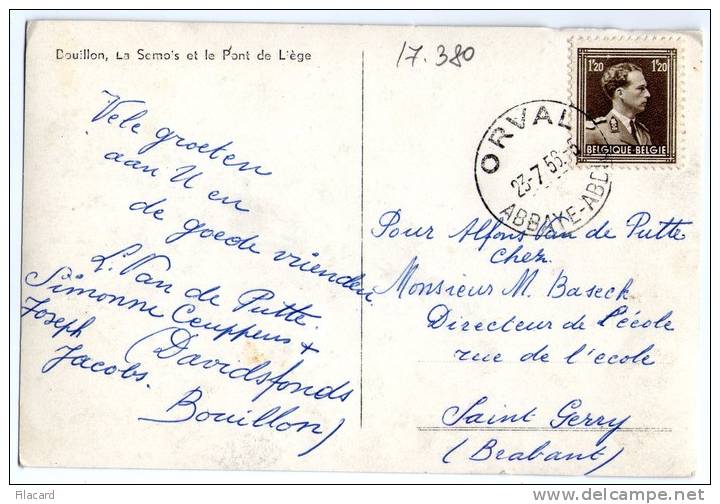 Bouillon, La Semois et le Pont de Liège
17.380
1F20 1F20
BELGIQUE-BELGIE
ORVAL
23-7.56
ABBAYE-ABD
Vele groeten
aan U en
de goede vrienden.
L. Van de Putte.
Simonne Ceuppens +
Joseph
Jacobs. (Davidsfonds
Bouillon)
Pour Alfons Van de Putte
chez
Monsieur M. Baseck
Directeur de l'école
rue de l'école
Saint Gerry
(Brabant)
Filacard
www.delcampe.net